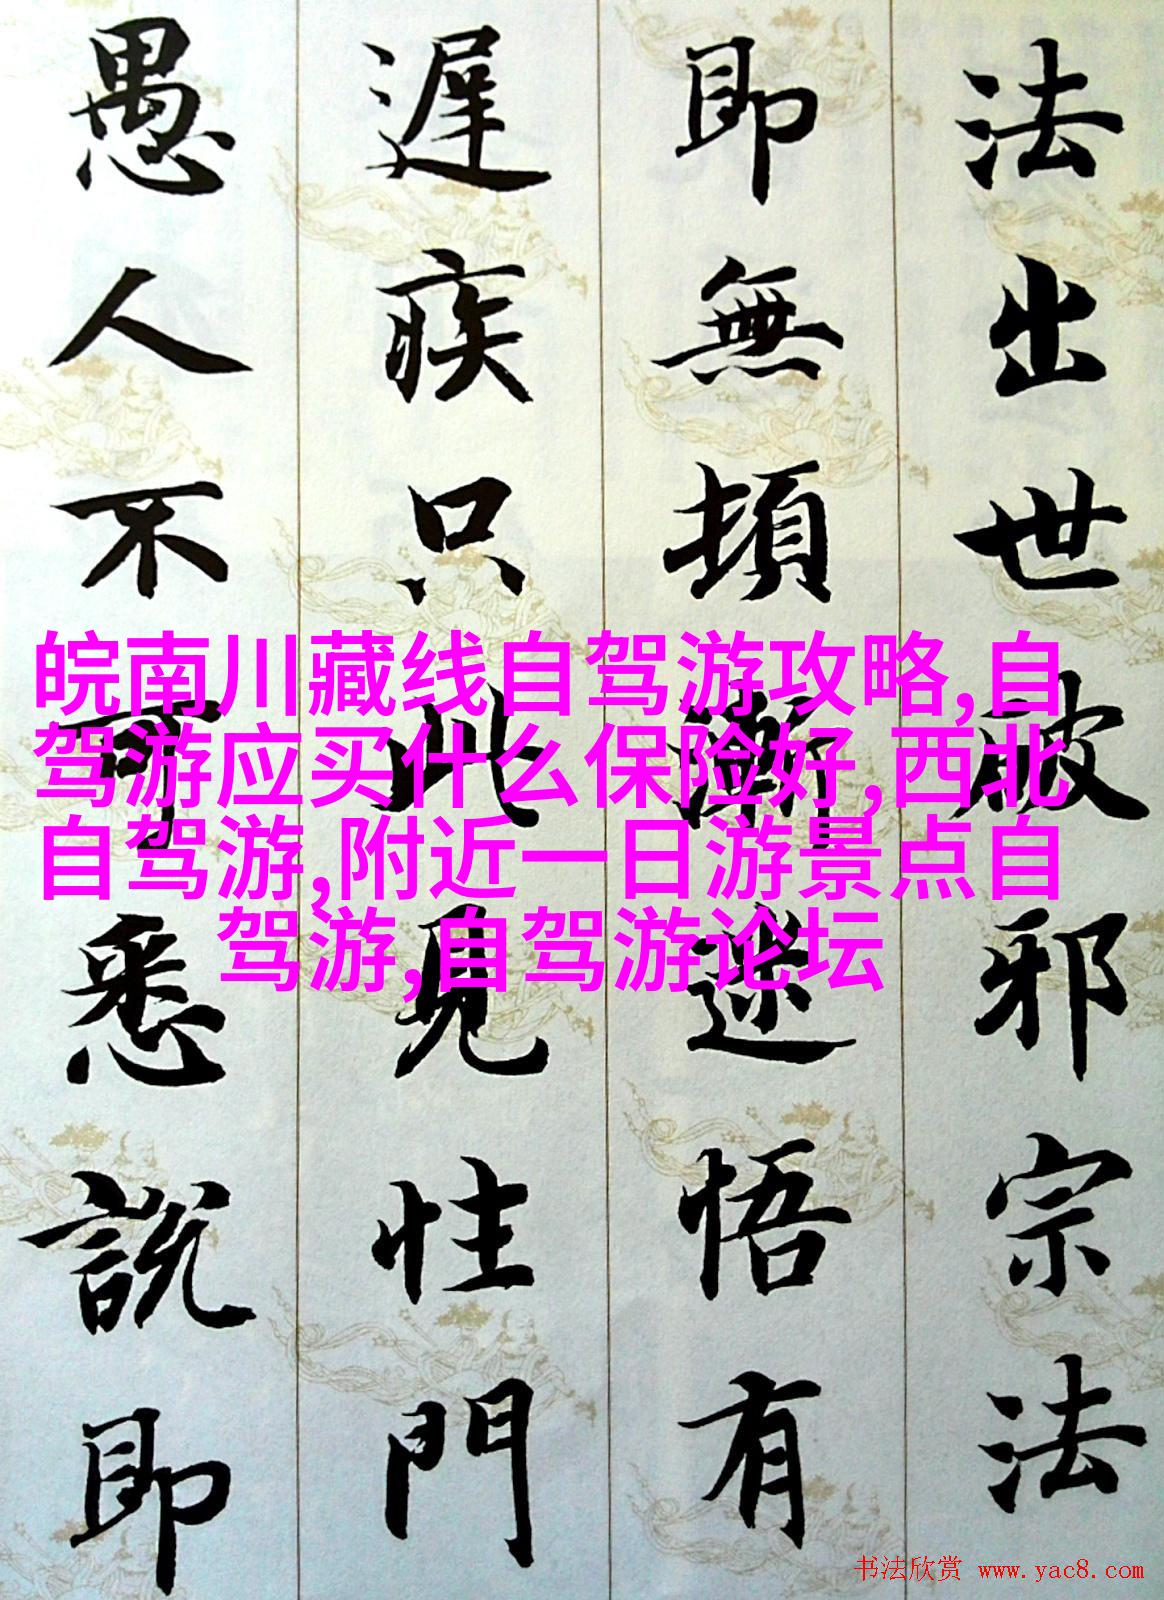 法出世破邪宗法
即無頓漸迷悟有
遲疾只此見性門
愚人不可悉説即
皖南川藏线自驾游攻略,自
驾游应买什么保险好,西北
自驾游,附近一日游景点自
驾游,自驾游论坛
书法欣赏 www.yac8.com